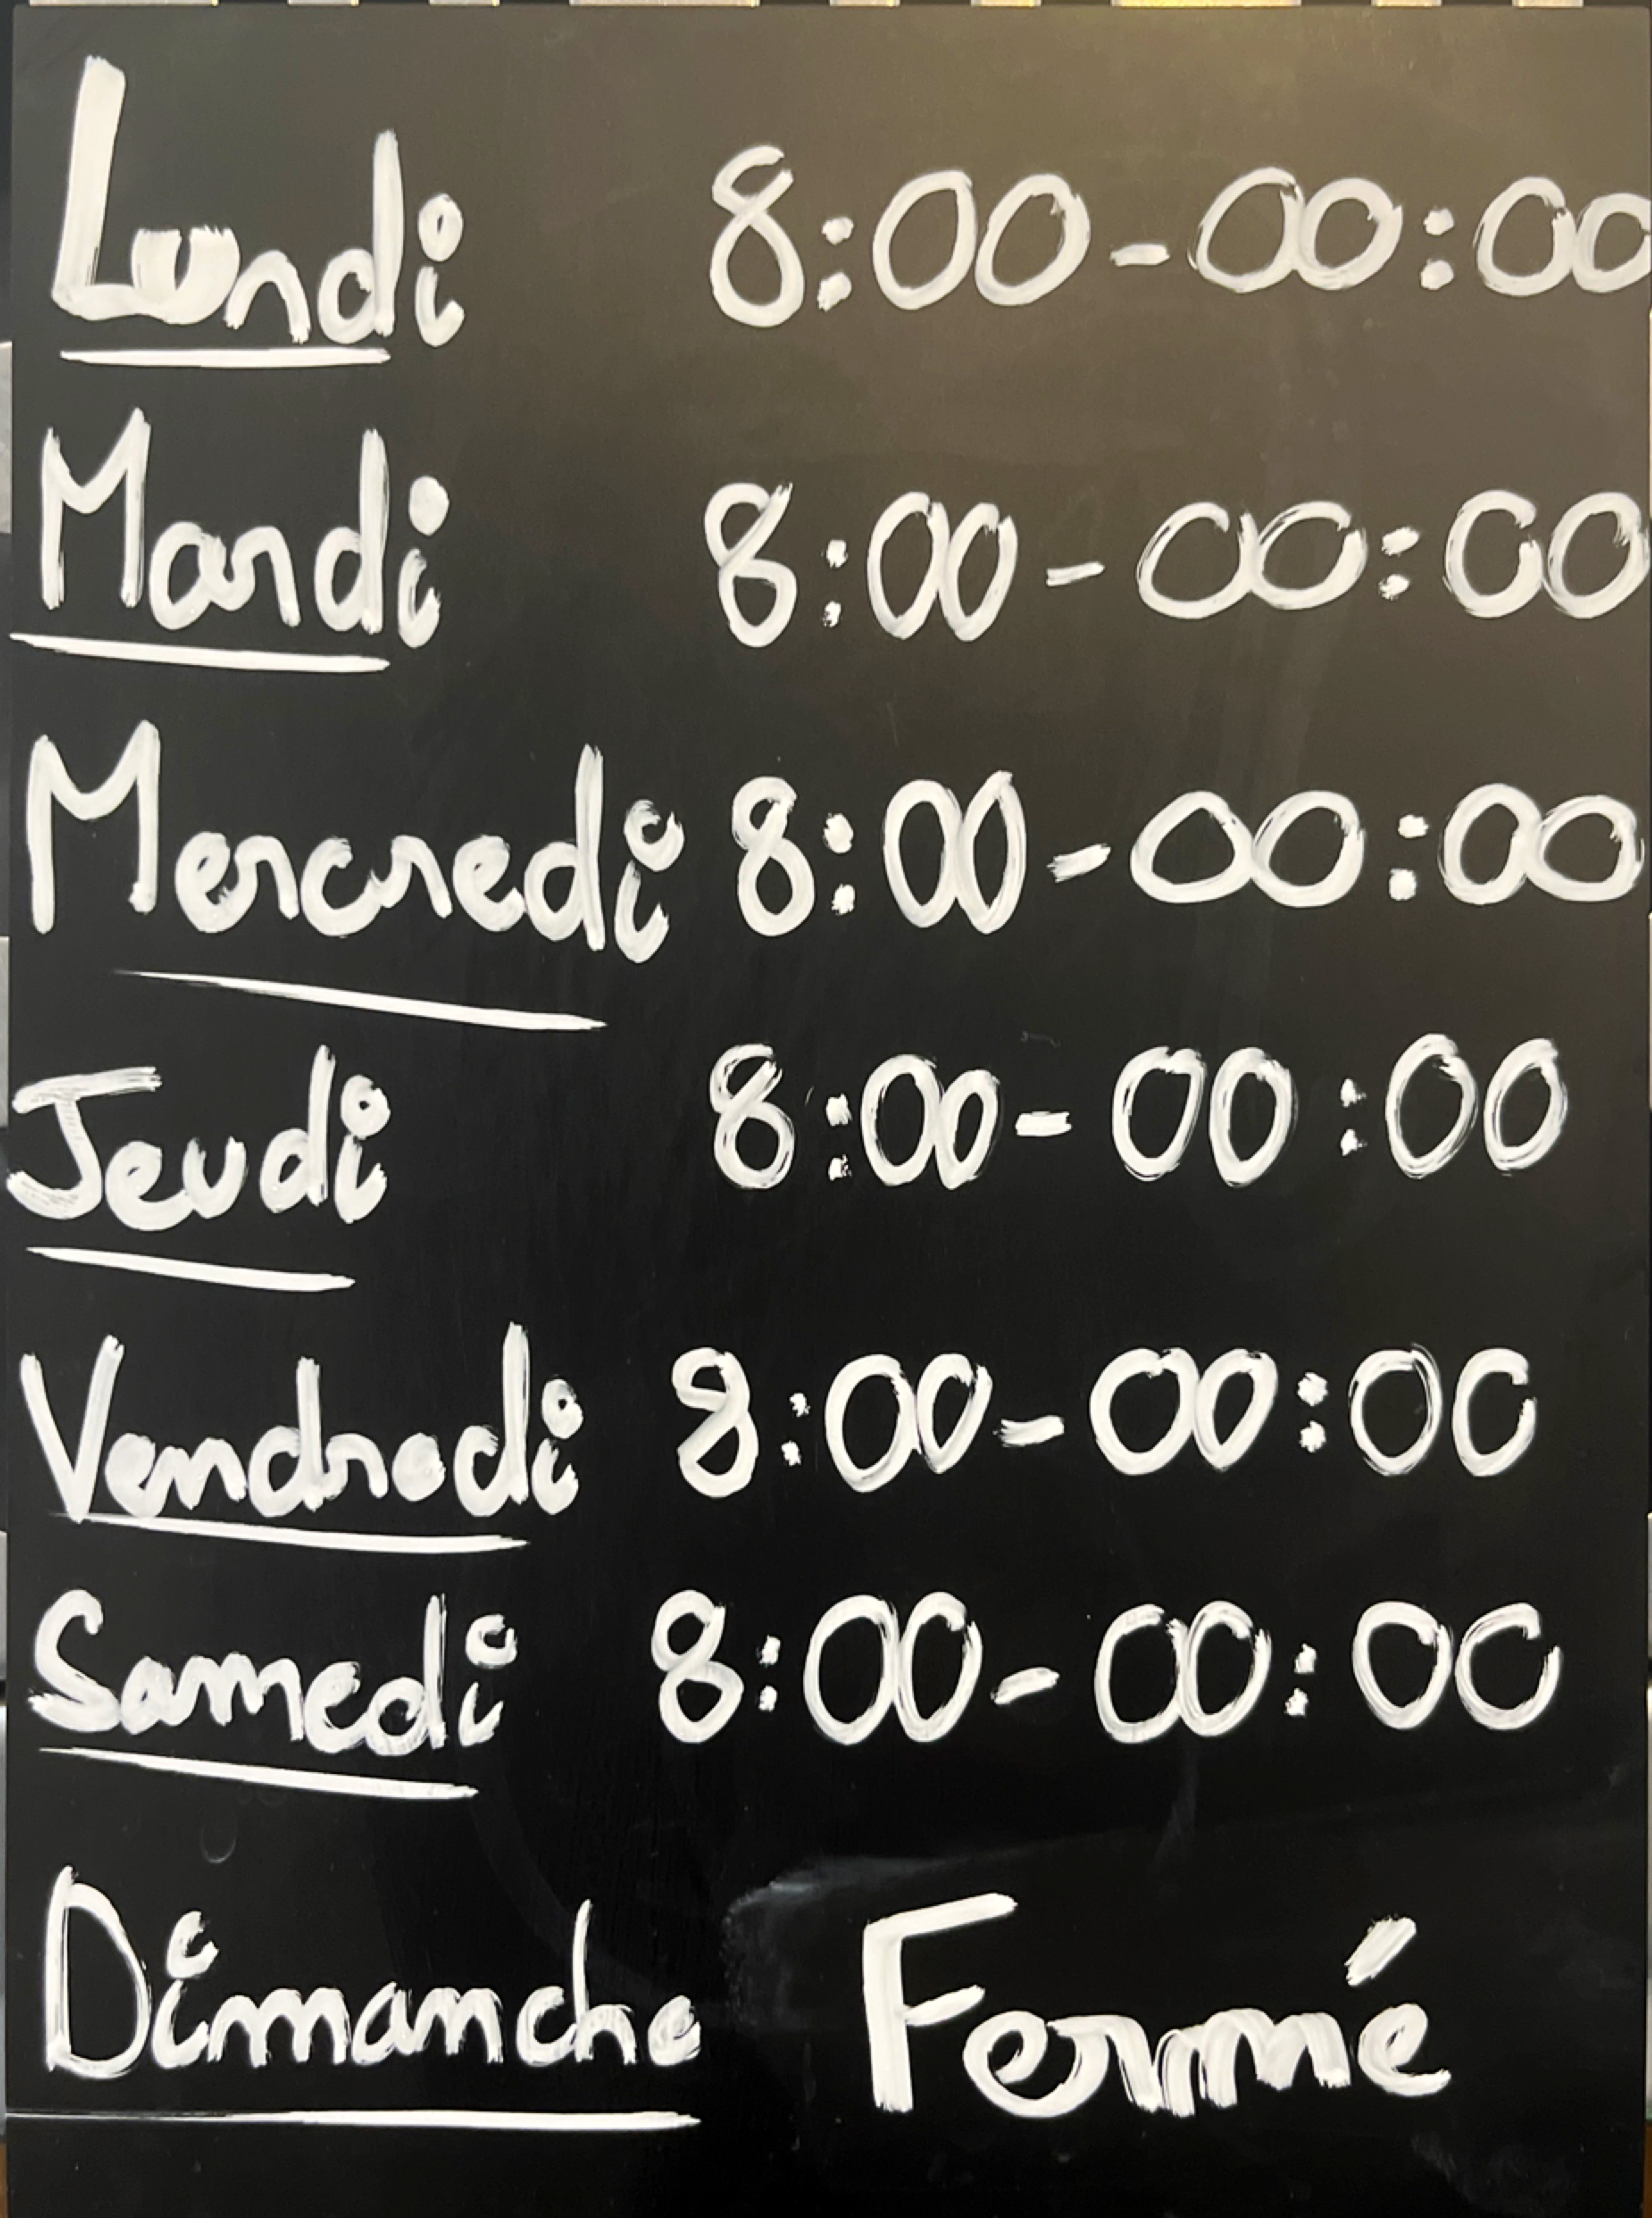 Lundi 8:00-00:00
Mardi 8:00-00:00
Mercredi 8:00-00:00
Jeudi 8:00-00:00
Vendredi 8:00-00:00
Samedi 8:00-00:00
Dimanche Fermé